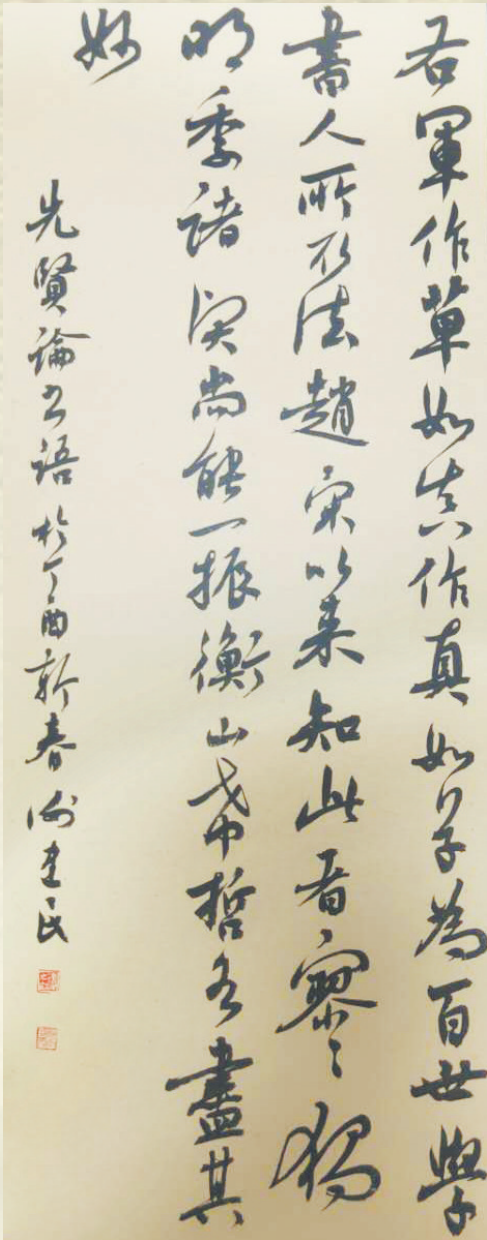 右軍作草如真作真如草為百世學
書人所取法趙宋以来知此者寥々獨
明季諸尚能一振衡山希哲各盡其
妙
先賢論書語於丁酉新春謝建民